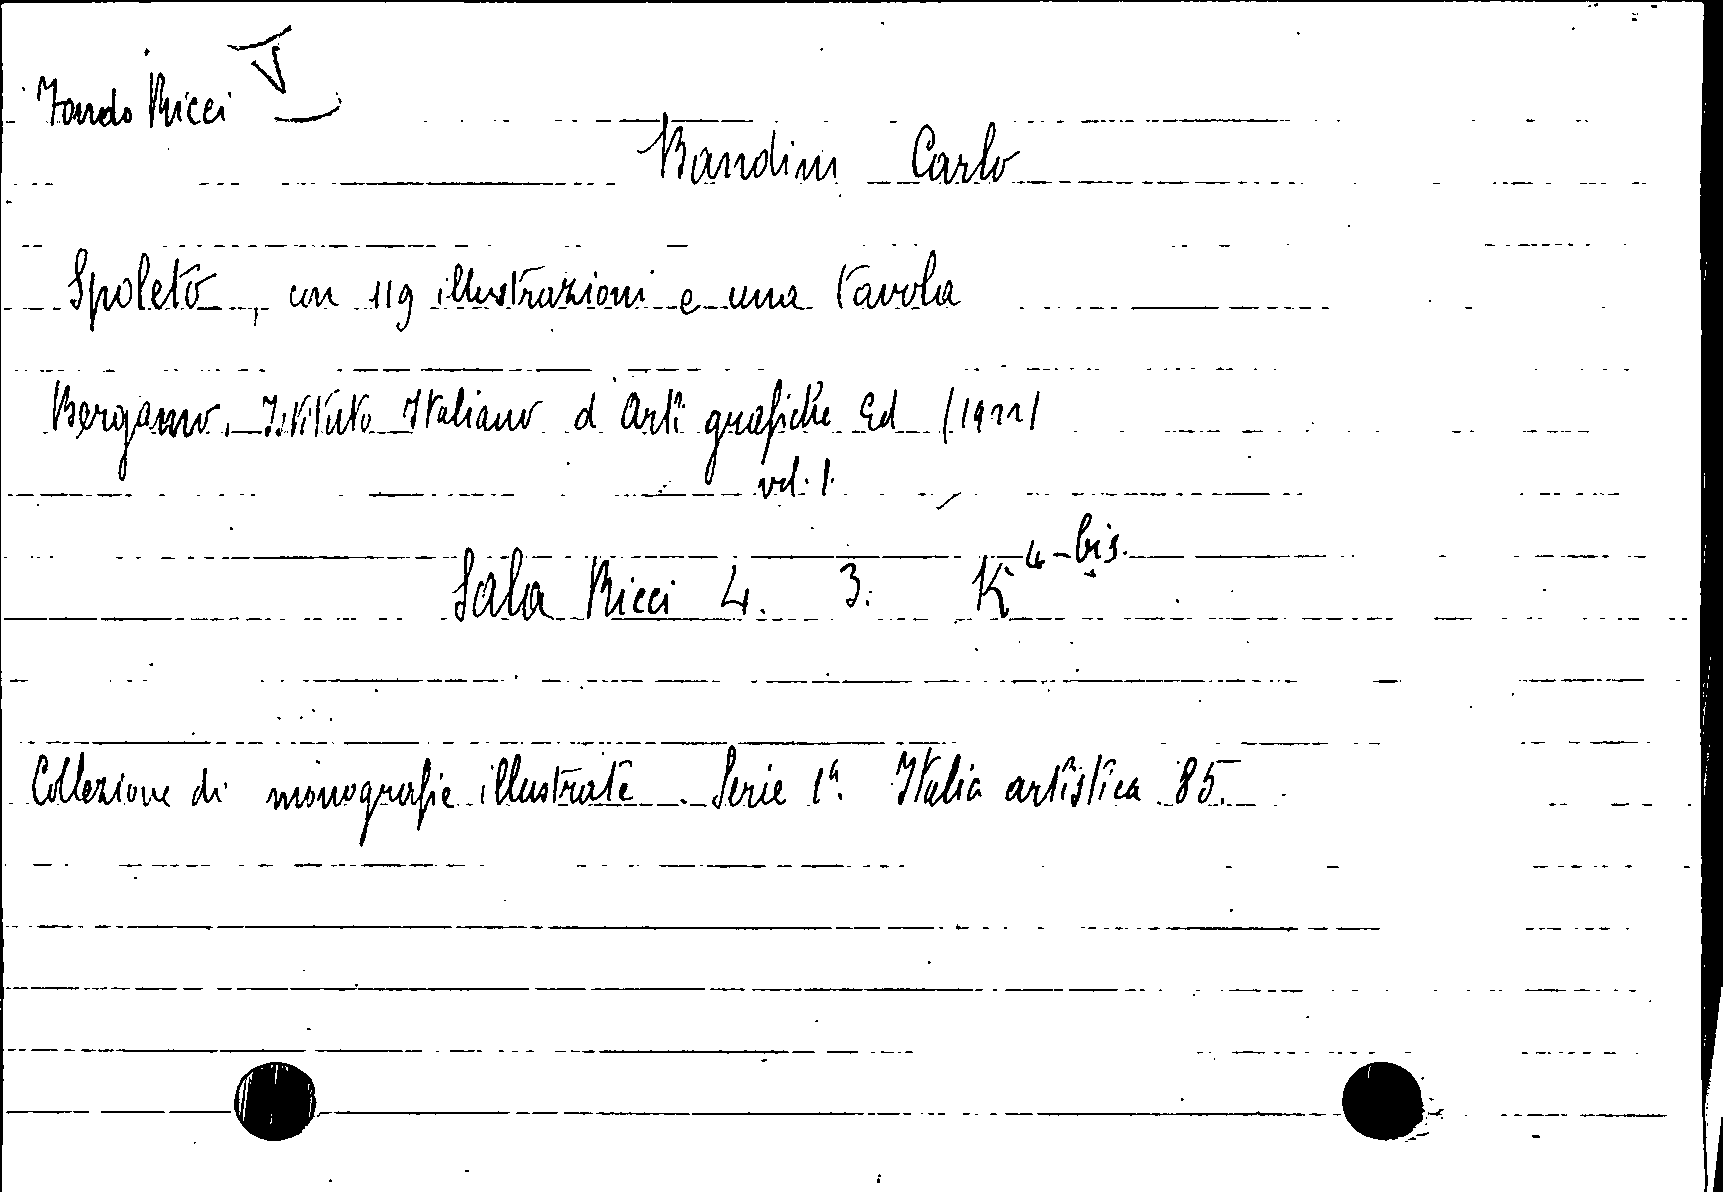 Fondo Ricci
Bandini Carlo
Spoleto, con 119 illustrazioni e una tavola
Bergamo. Istituto Italiano d'Arti grafiche Ed (1922)
vol. 1.
Sala Ricci 4. 3. K 4-bis.
Collezione di monografie illustrate. Serie 1a. Italia artistica 85.